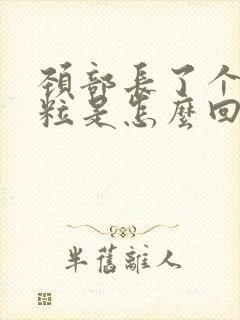 頚部長了个
粒是怎麽回
半舊離人